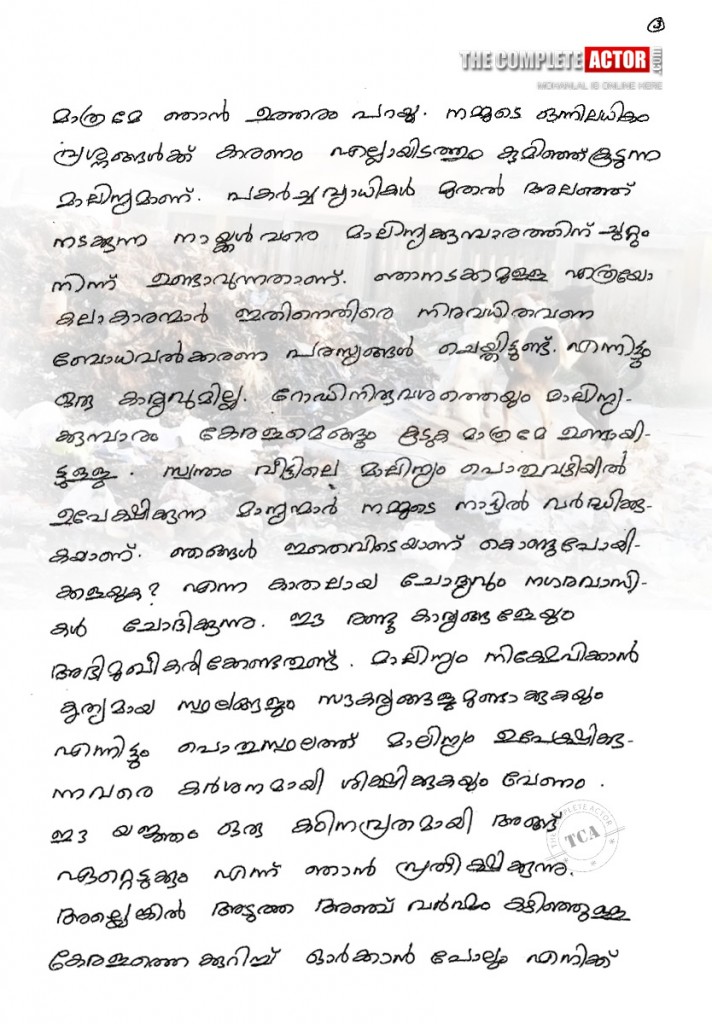 3
THE COMPLETE ACTOR .COM
MOHANLAL IS ONLINE HERE
മാത്രമേ ഞാൻ ഉത്തരം പറയൂ. നമ്മുടെ ഒന്നിലധികം
പ്രശ്നങ്ങൾക്ക് കാരണം എല്ലായിടത്തും കുമിഞ്ഞ്കൂടുന്ന
മാലിന്യമാണ്. പകർച്ചവ്യാധികൾ മുതൽ അലഞ്ഞ്
നടക്കുന്ന നായ്ക്കൾ വരെ മാലിന്യക്കൂമ്പാരത്തിന് ചുറ്റും
നിന്ന് ഉണ്ടാവുന്നതാണ്. ഞാനടക്കമുള്ള എത്രയോ
കലാകാരന്മാർ ഇതിനെതിരെ നിരവധിതവണ
ബോധവൽക്കരണ പരസ്യങ്ങൾ ചെയ്തിട്ടുണ്ട്. എന്നിട്ടും
ഒരു കാര്യവുമില്ല. റോഡിനിരുവശത്തെയും മാലിന്യ-
ക്കൂമ്പാരം കേരളമെങ്ങും കൂടുക മാത്രമേ ഉണ്ടായി-
ട്ടുള്ളൂ. സ്വന്തം വീട്ടിലെ മാലിന്യം പൊതുവഴിയിൽ
ഉപേക്ഷിക്കുന്ന മാന്യന്മാർ നമ്മുടെ നാട്ടിൽ വർദ്ധിക്കു-
കയാണ്. ഞങ്ങൾ ഇതെവിടെയാണ് കൊണ്ടുപോയി-
ക്കളയുക? എന്ന കാതലായ ചോദ്യവും നഗരവാസി-
കൾ ചോദിക്കുന്നു. ഈ രണ്ടു കാര്യങ്ങളേയും
അഭിമുഖീകരിക്കേണ്ടതുണ്ട്. മാലിന്യം നിക്ഷേപിക്കാൻ
കൃത്യമായ സ്ഥലങ്ങളും സൗകര്യങ്ങളുമുണ്ടാക്കുകയും
എന്നിട്ടും പൊതുസ്ഥലത്ത് മാലിന്യം ഉപേക്ഷിക്കു-
ന്നവരെ കർശനമായി ശിക്ഷിക്കുകയും വേണം.
ഈ യജ്ഞം ഒരു കഠിനവ്രതമായി അങ്ങ്
ഏറ്റെടുക്കും എന്ന് ഞാൻ പ്രതീക്ഷിക്കുന്നു.
അല്ലെങ്കിൽ അടുത്ത അഞ്ച് വർഷം കഴിഞ്ഞുള്ള
കേരളത്തെക്കുറിച്ച് ഓർക്കാൻ പോലും എനിക്ക്
THE COMPLETE ACTOR
TCA